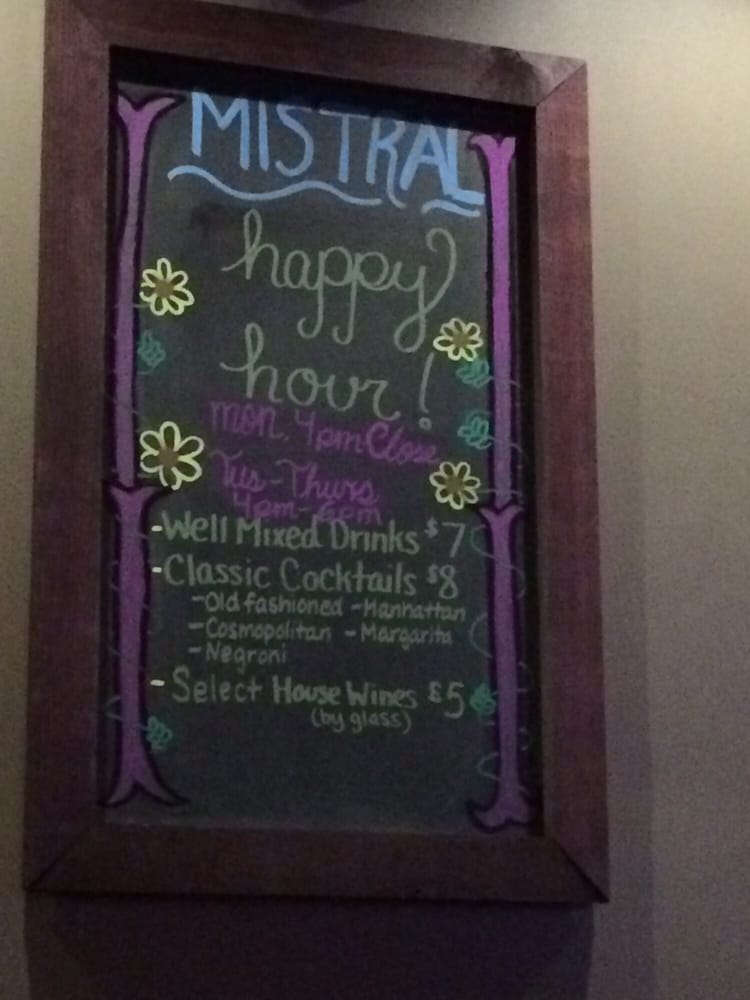 MISTRAL
happy
hour!
mon. 4pm Close
Tus-Thurs
4pm-6pm
-Well Mixed Drinks $7
-Classic Cocktails $8
-Old fashioned -Manhattan
-Cosmopolitan -Margarita
-Negroni
- Select House Wines $5
(by glass)